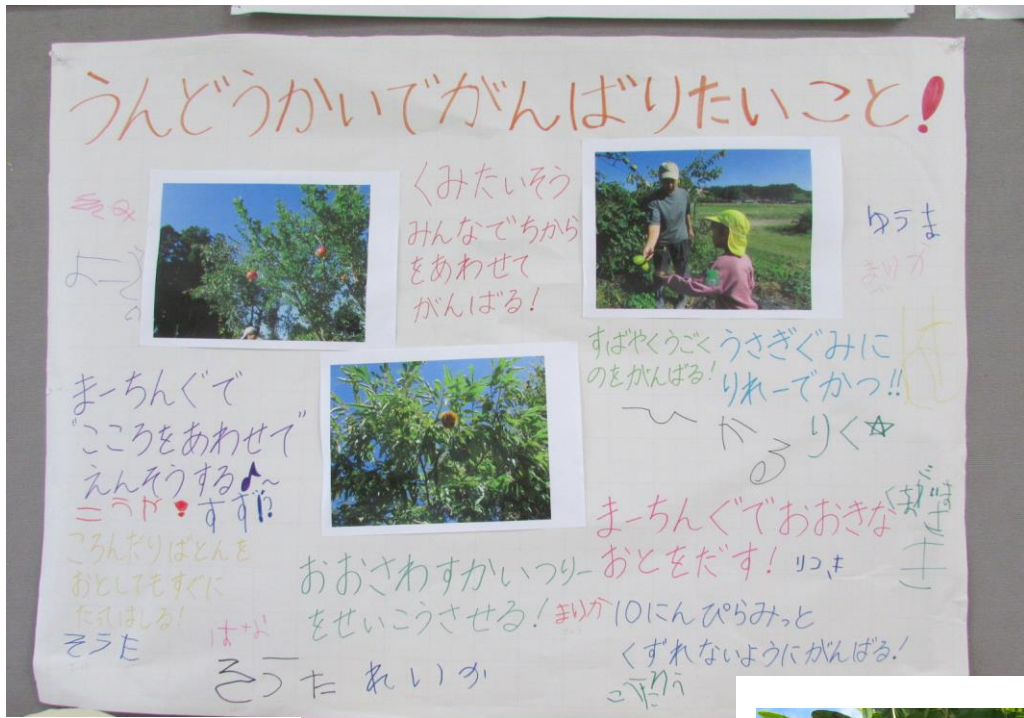 うんどうかいでがんばりたいこと!
くみたいそう
みんなでちから
をあわせて
がんばる!
ゆうま
まりか
すばやくうごく
のをがんばる!
うさぎぐみに
りれーでかつ!!
ひかる
りく☆
まーちんぐで
"こころをあわせて"
えんそうする♪~
こうが!
すず!?
ころんだりばとんを
おとしてもすぐに
たってはしる!
そうた
はな
そうた
れいか
おおさわすかいつりー
をせいこうさせる!
まりか
まーちんぐでおおきな
おとをだす!
10にんぴらみっと
くずれないようにがんばる!